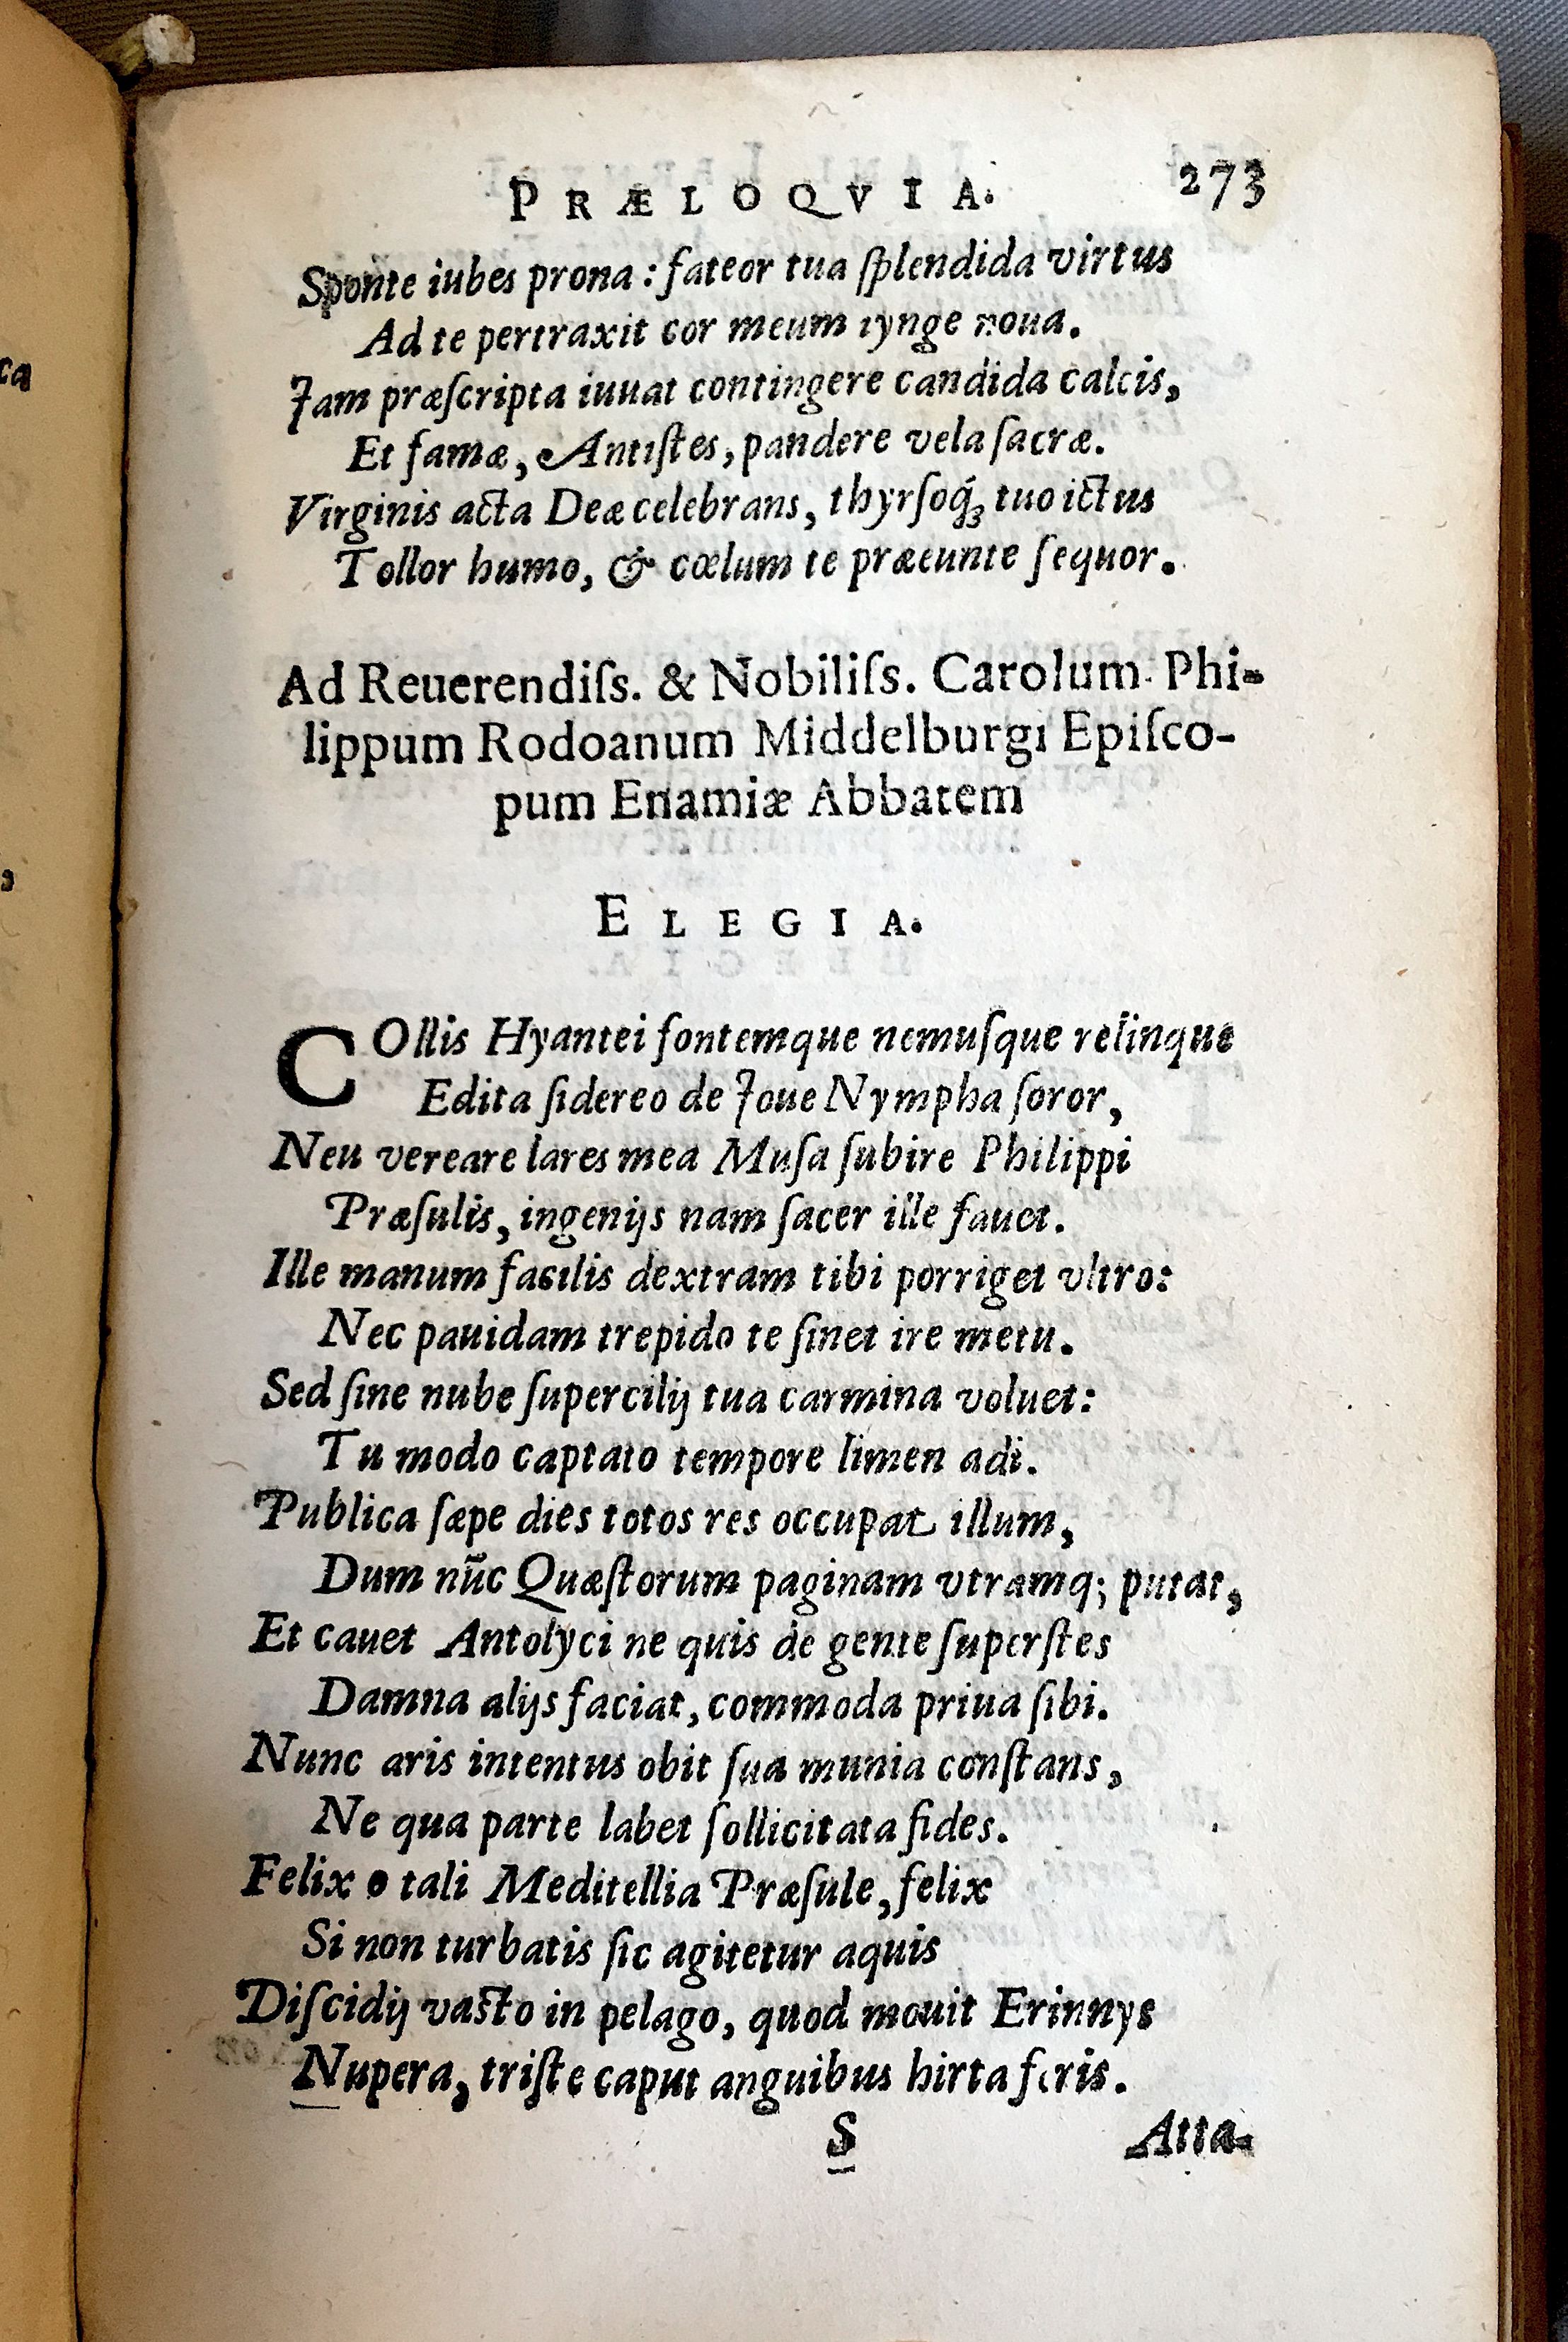 PRÆLOQVIA. 273
Sponte iubes prona : fateor tua ſplendida virtus
Ad te pertraxit cor meum iynge noua.
Iam præſcripta iuuat contingere candida calcis,
Et famæ, Antiſtes, pandere vela ſacræ.
Virginis acta Deæ celebrans, thyrſoq́ꝫ tuo ictus
Tollor humo, & cœlum te præeunte ſequor.
Ad Reuerendiſs. & Nobiliſs. Carolum Phi-
lippum Rodoanum Middelburgi Epiſco-
pum Enamiæ Abbatem
ELEGIA.
COllis Hyantei fontemque nemuſque relinque
Edita ſidereo de Ioue Nympha ſoror,
Neu vereare lares mea Muſa ſubire Philippi
Præſulis, ingenijs nam ſacer ille fauet.
Ille manum facilis dextram tibi porriget vltro:
Nec pauidam trepido te ſinet ire metu.
Sed ſine nube ſupercilij tua carmina voluet:
Tu modo captato tempore limen adi.
Publica ſæpe dies totos res occupat illum,
Dum nūc Quæſtorum paginam vtramq; putat,
Et cauet Antolyci ne quis de gente ſuperſtes
Damna alijs faciat, commoda priua ſibi.
Nunc aris intentus obit ſua munia conſtans,
Ne qua parte labet ſollicitata fides.
Felix o tali Meditellia Præſule, felix
Si non turbatis ſic agitetur aquis
Diſcidij vaſto in pelago, quod mouit Erinnys
Nupera, triſte caput anguibus hirta feris.
S Atta-
ca
,